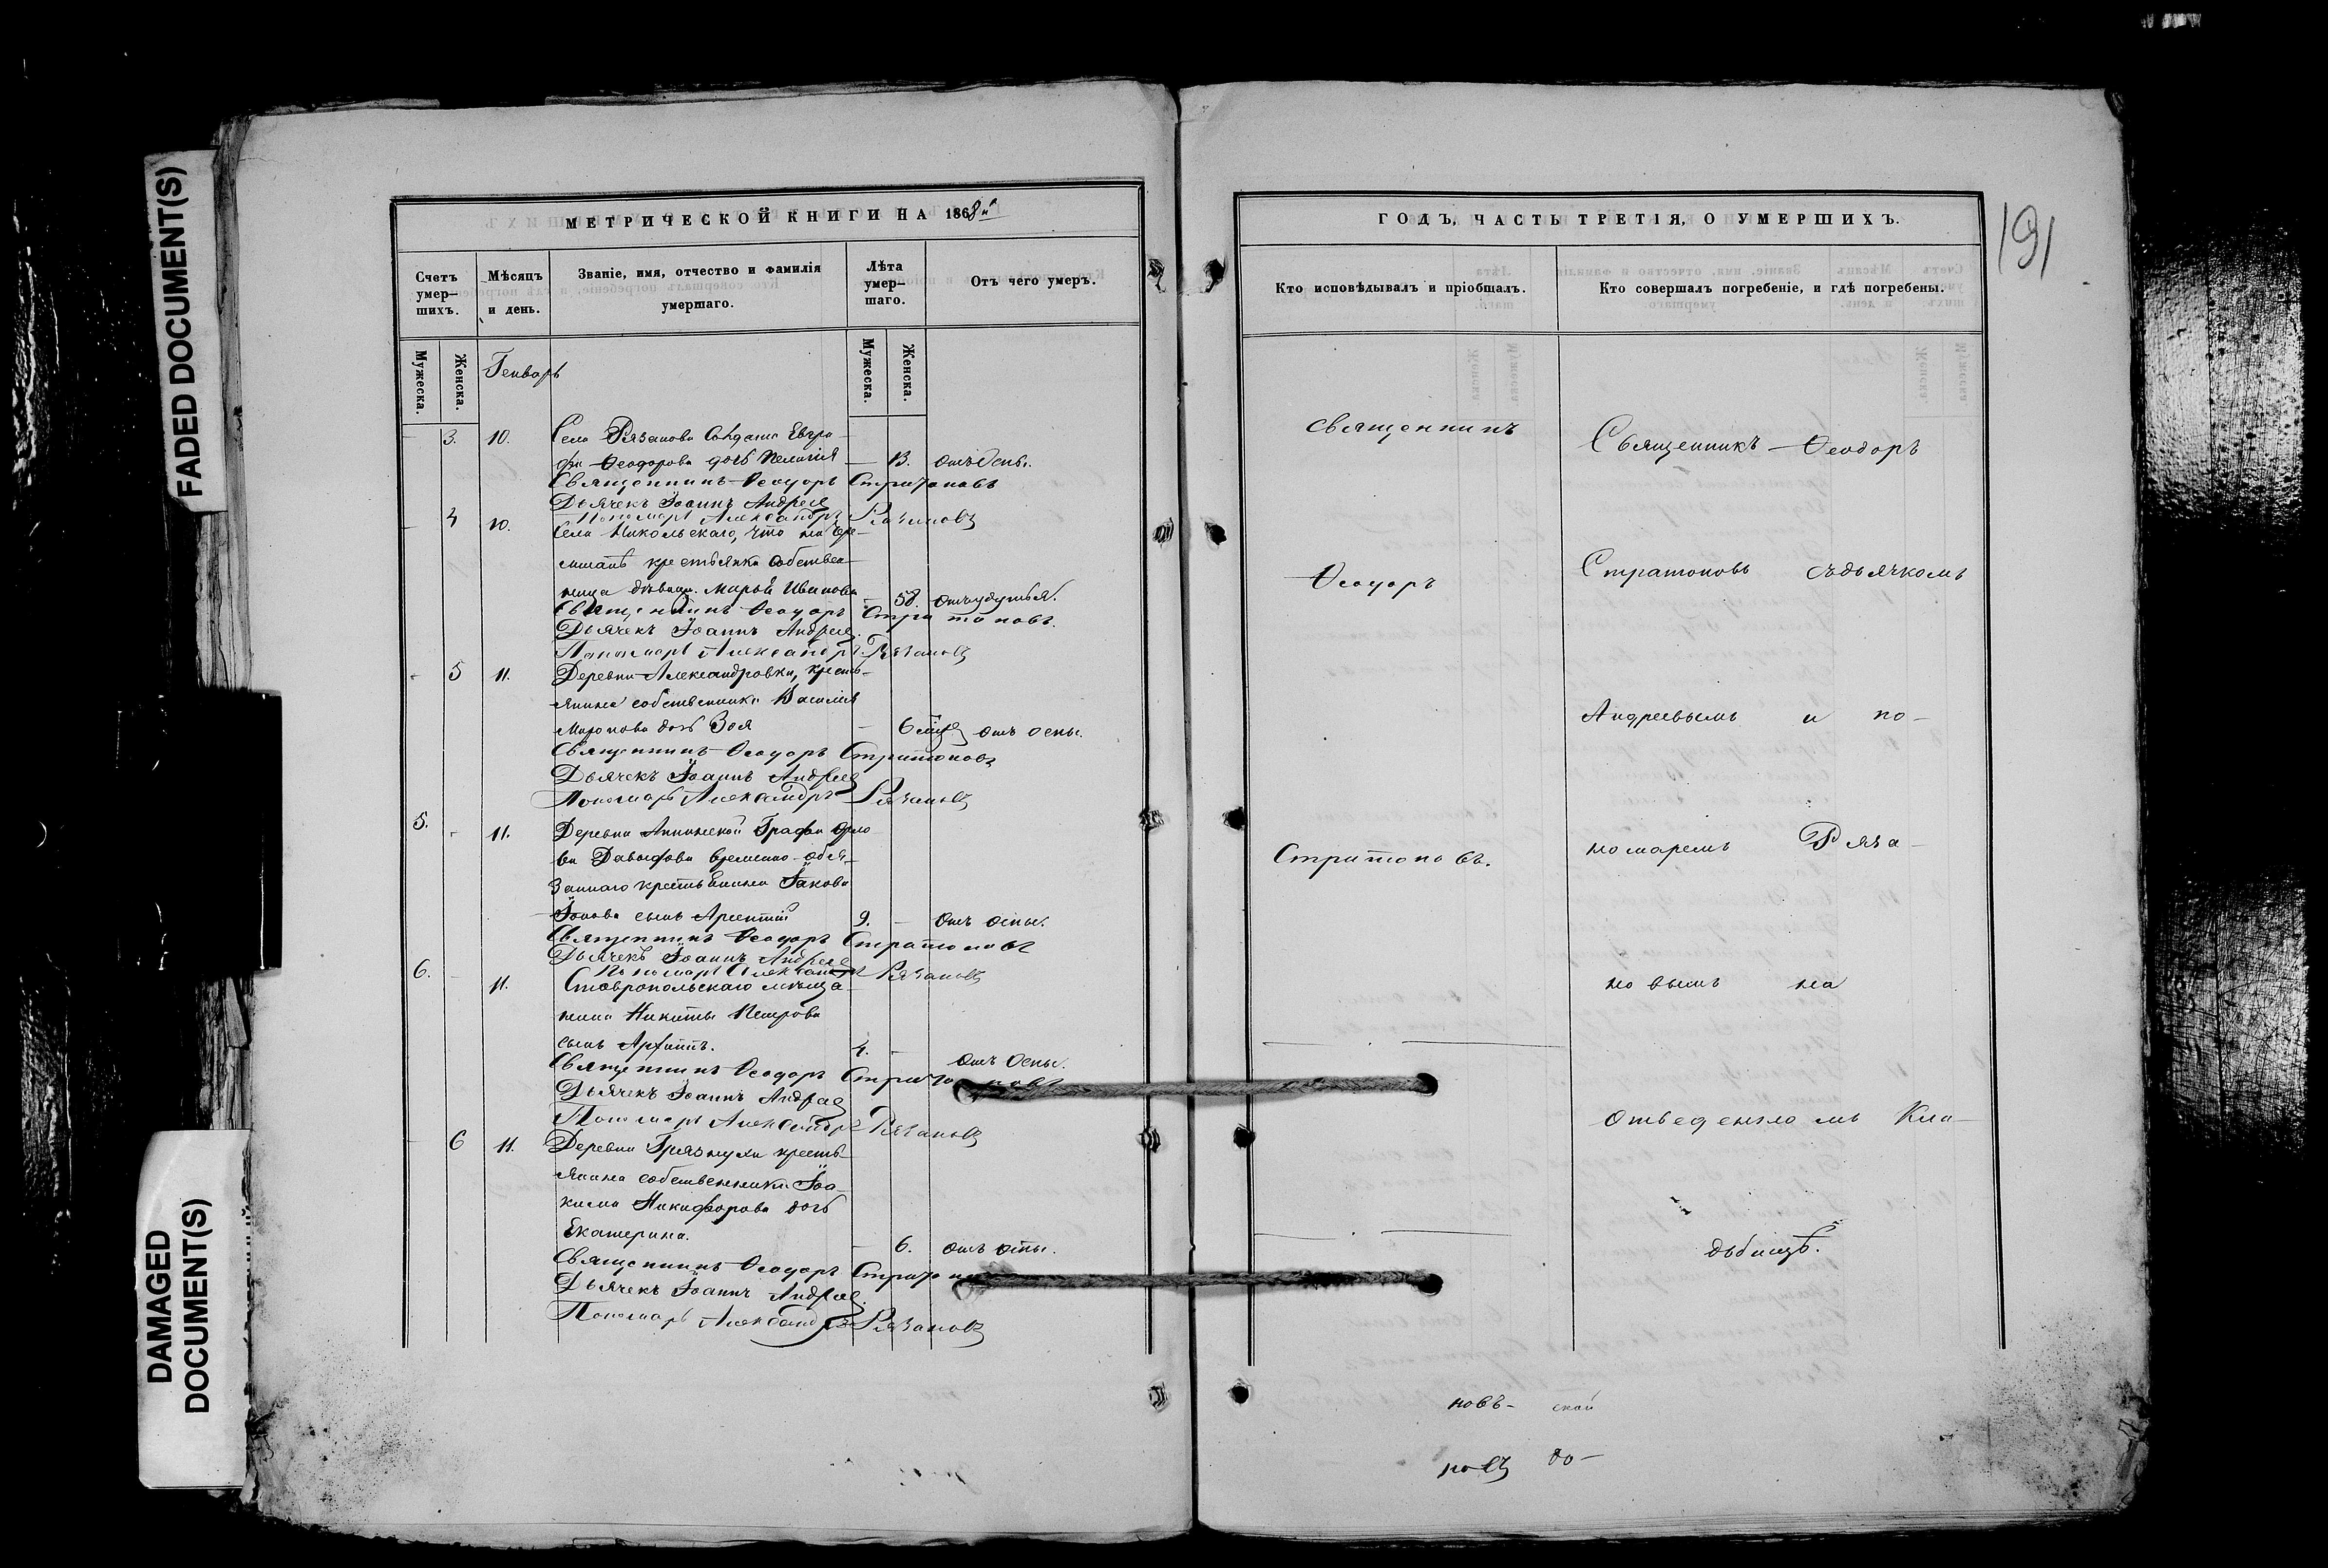 FADED DOCUMENT(S)
DAMAGED
DOCUMENT(S)
МЕТРИЧЕСКОЙ КНИГИ НА 1868й
Счетъ умер–шихъ.
Мѣсяцъ и день.
Званіе, имя, отчество и фамилія умершаго.
Лѣта умер–шаго.
Отъ чего умеръ.
Мужеска.
Женска.
Генварь
Мужеска.
Женска.
3. 10. Села Рязанова Солдата Евгра–
фа Ѳеодорова дочь Пелагія — 13. отъ оспы.
Священникъ Ѳеодоръ Стратоновъ
Дьячекъ Іоаннъ Андреев
Пономарь Александръ Рязановъ
4 10. Села Никольскаго, что на Чере–
мшанѣ крестьянка собствен–
ница дѣвица Марья Иванова 58. отъ удушья.
Священникъ Ѳеодоръ Стратоновъ.
Дьячекъ Іоаннъ Андреев
Пономарь Александръ Рязановъ
5 11. Деревни Александровки, кресть–
янина собственника Василія
Миронова дочь Зоя — 6 мѣс отъ оспы.
Священникъ Ѳеодоръ Стратоновъ
Дьячекъ Іоаннъ Андреев
Пономарь Александръ Рязановъ
5. - 11. Деревни Аннинской Графа Орло
ва Давыдова временно-обя–
заннаго крестьянина Іакова
Іонова сынъ Арсентій 9. — отъ оспы.
Священникъ Ѳеодоръ Стратоновъ
Дьячекъ Іоаннъ Андреев
Пономарь Александръ Рязановъ
6. - 11. Ставропольскаго мѣща–
нина Никиты Петрова
сынъ Архиппъ. 4. — отъ оспы.
Священникъ Ѳеодоръ Стратоновъ
Дьячекъ Іоаннъ Андреев
Пономарь Александръ Рязановъ
6 11. Деревни Грязнухи кресть–
янина собственника Іоа–
кима Никифорова дочь
Екатерина. — 6. отъ оспы.
Священникъ Ѳеодоръ Стратоно
Дьячекъ Іоаннъ Андреев
Пономарь Александръ Рязановъ
ГОДЪ, ЧАСТЬ ТРЕТІЯ, О УМЕРШИХЪ.
191
Кто исповѣдывалъ и пріобщалъ.
Кто совершалъ погребеніе, и гдѣ погребены.
Священникъ
Ѳеодоръ
Стратоновъ.
Священникъ Ѳеодоръ
Стратоновъ съ дьячкомъ
Андреевымъ и по–
номаремъ Ряза–
новымъ на
отведенномъ Кла–
дбищѣ.
новъ– ской
новъ до–